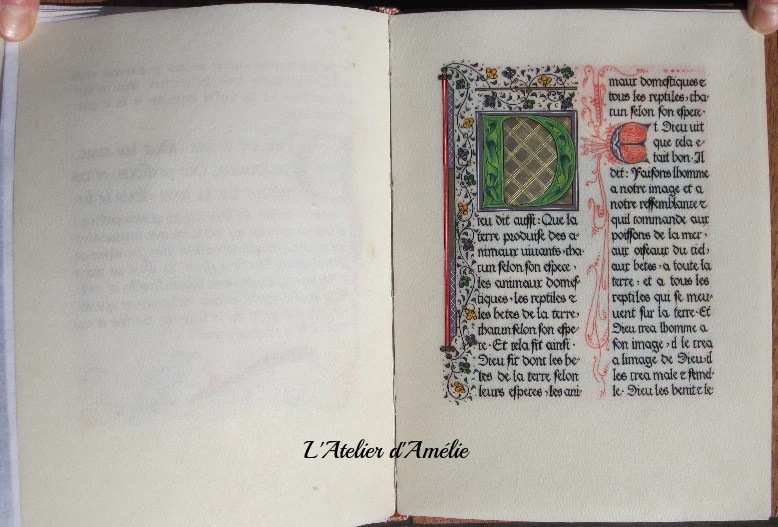 Dieu dit aussi: Que la
terre produise des a-
nimaux uiuants, cha-
cun selon son espece,
les animaux domes-
tiques, les reptiles &
les betes de la terre,
chacun selon son espe-
ce. Et cela fit ainsi.
Dieu fit donc les be-
tes de la terre selon
leurs especes, les ani-
maux domestiques &
tous les reptiles, cha-
cun selon son espece.
Et Dieu uit
que cela e-
tait bon. Il
dit: Faisons lhomme
a notre image et a
notre ressemblance &
quil commande aux
poissons de la mer,
aux oiseaux du ciel,
aux betes, a toute la
terre, et a tous les
reptiles qui se meu-
uent sur la terre. Et
Dieu crea lhomme a
son image, il le crea
a limage de Dieu, il
les crea male & femel-
le. Dieu les benit & le
L'Atelier d'Amélie